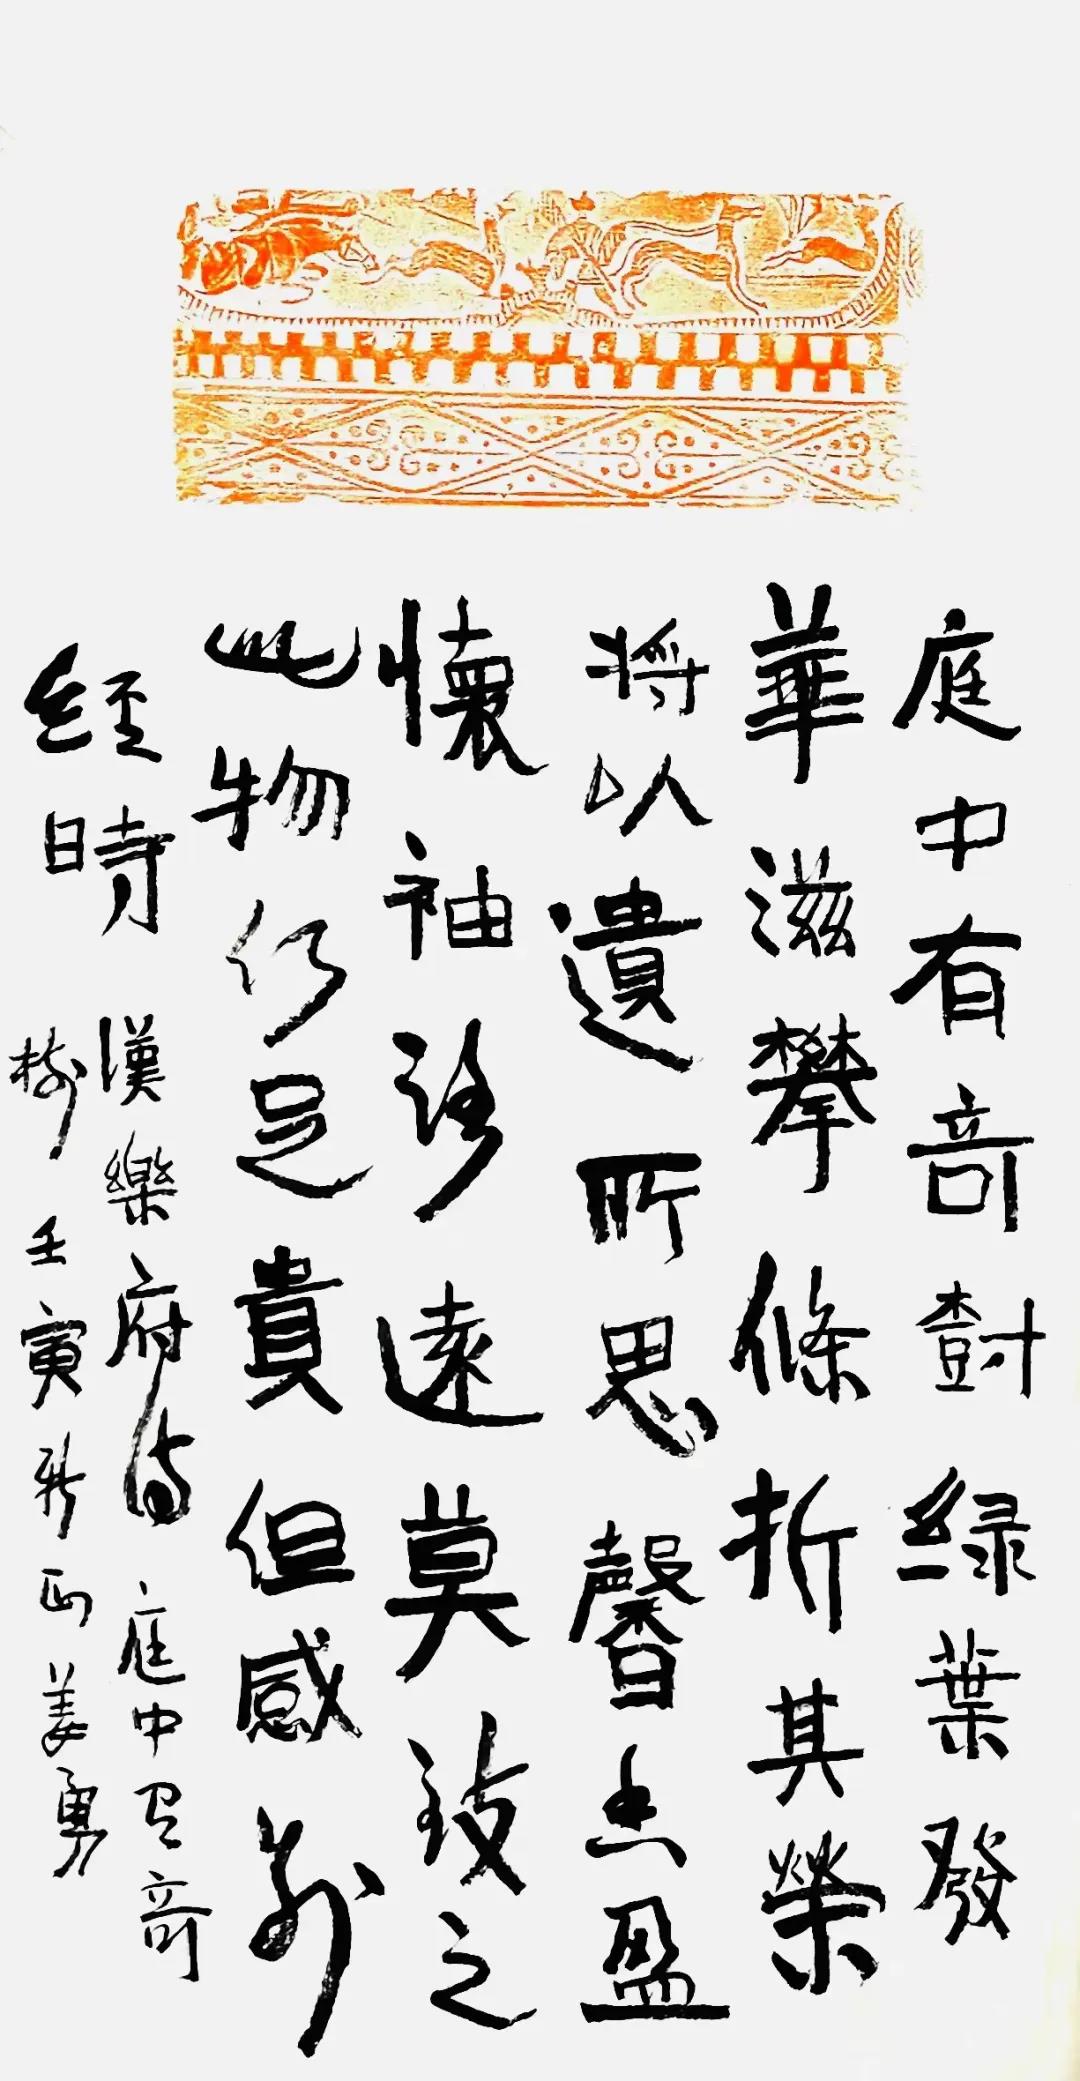 庭中有奇樹緑葉發
華滋攀條折其榮
將以遺所思馨香盈
懷袖路遠莫致之
此物何足貴但感別
經時
漢樂府詩 庭中有奇
樹 壬寅新正 姜勇